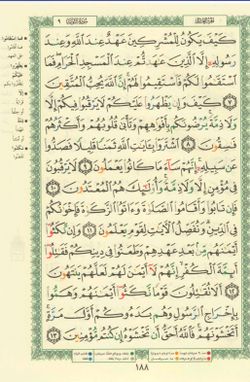 سُورَةُ التَّوْبَةِ ٩
كَيْفَ يَكُونُ لِلْمُشْرِكِينَ عَهْدٌ عِندَ اللَّهِ وَعِندَ
رَسُولِهِ إِلَّا الَّذِينَ عَٰهَدتُّمْ عِندَ الْمَسْجِدِ الْحَرَامِ فَمَا
اسْتَقَٰمُوا لَكُمْ فَاسْتَقِيمُوا لَهُمْ إِنَّ اللَّهَ يُحِبُّ الْمُتَّقِينَ
٧ كَيْفَ وَإِن يَظْهَرُوا عَلَيْكُمْ لَا يَرْقُبُوا فِيكُمْ إِلًّا
وَلَا ذِمَّةً يُرْضُونَكُم بِأَفْوَٰهِهِمْ وَتَأْبَىٰ قُلُوبُهُمْ وَأَكْثَرُهُمْ
فَٰسِقُونَ ٨ اشْتَرَوْا بِـَٔايَٰتِ اللَّهِ ثَمَنًا قَلِيلًا فَصَدُّوا
عَن سَبِيلِهِ إِنَّهُمْ سَآءَ مَا كَانُوا يَعْمَلُونَ ٩ لَا يَرْقُبُونَ
فِي مُؤْمِنٍ إِلًّا وَلَا ذِمَّةً وَأُولَٰٓئِكَ هُمُ الْمُعْتَدُونَ ١٠
فَإِن تَابُوا وَأَقَامُوا الصَّلَوٰةَ وَءَاتَوُا الزَّكَوٰةَ فَإِخْوَٰنُكُمْ
فِي الدِّينِ وَنُفَصِّلُ الْـَٔايَٰتِ لِقَوْمٍ يَعْلَمُونَ ١١ وَإِن نَّكَثُوا
أَيْمَٰنَهُم مِّن بَعْدِ عَهْدِهِمْ وَطَعَنُوا فِي دِينِكُمْ فَقَٰتِلُوا
أَئِمَّةَ الْكُفْرِ إِنَّهُمْ لَآ أَيْمَٰنَ لَهُمْ لَعَلَّهُمْ يَنتَهُونَ
١٢ أَلَا تُقَٰتِلُونَ قَوْمًا نَّكَثُوا أَيْمَٰنَهُمْ وَهَمُّوا
بِإِخْرَاجِ الرَّسُولِ وَهُم بَدَءُوكُمْ أَوَّلَ مَرَّةٍ
أَتَخْشَوْنَهُمْ فَاللَّهُ أَحَقُّ أَن تَخْشَوْهُ إِن كُنتُم مُّؤْمِنِينَ ١٣
١٨٨